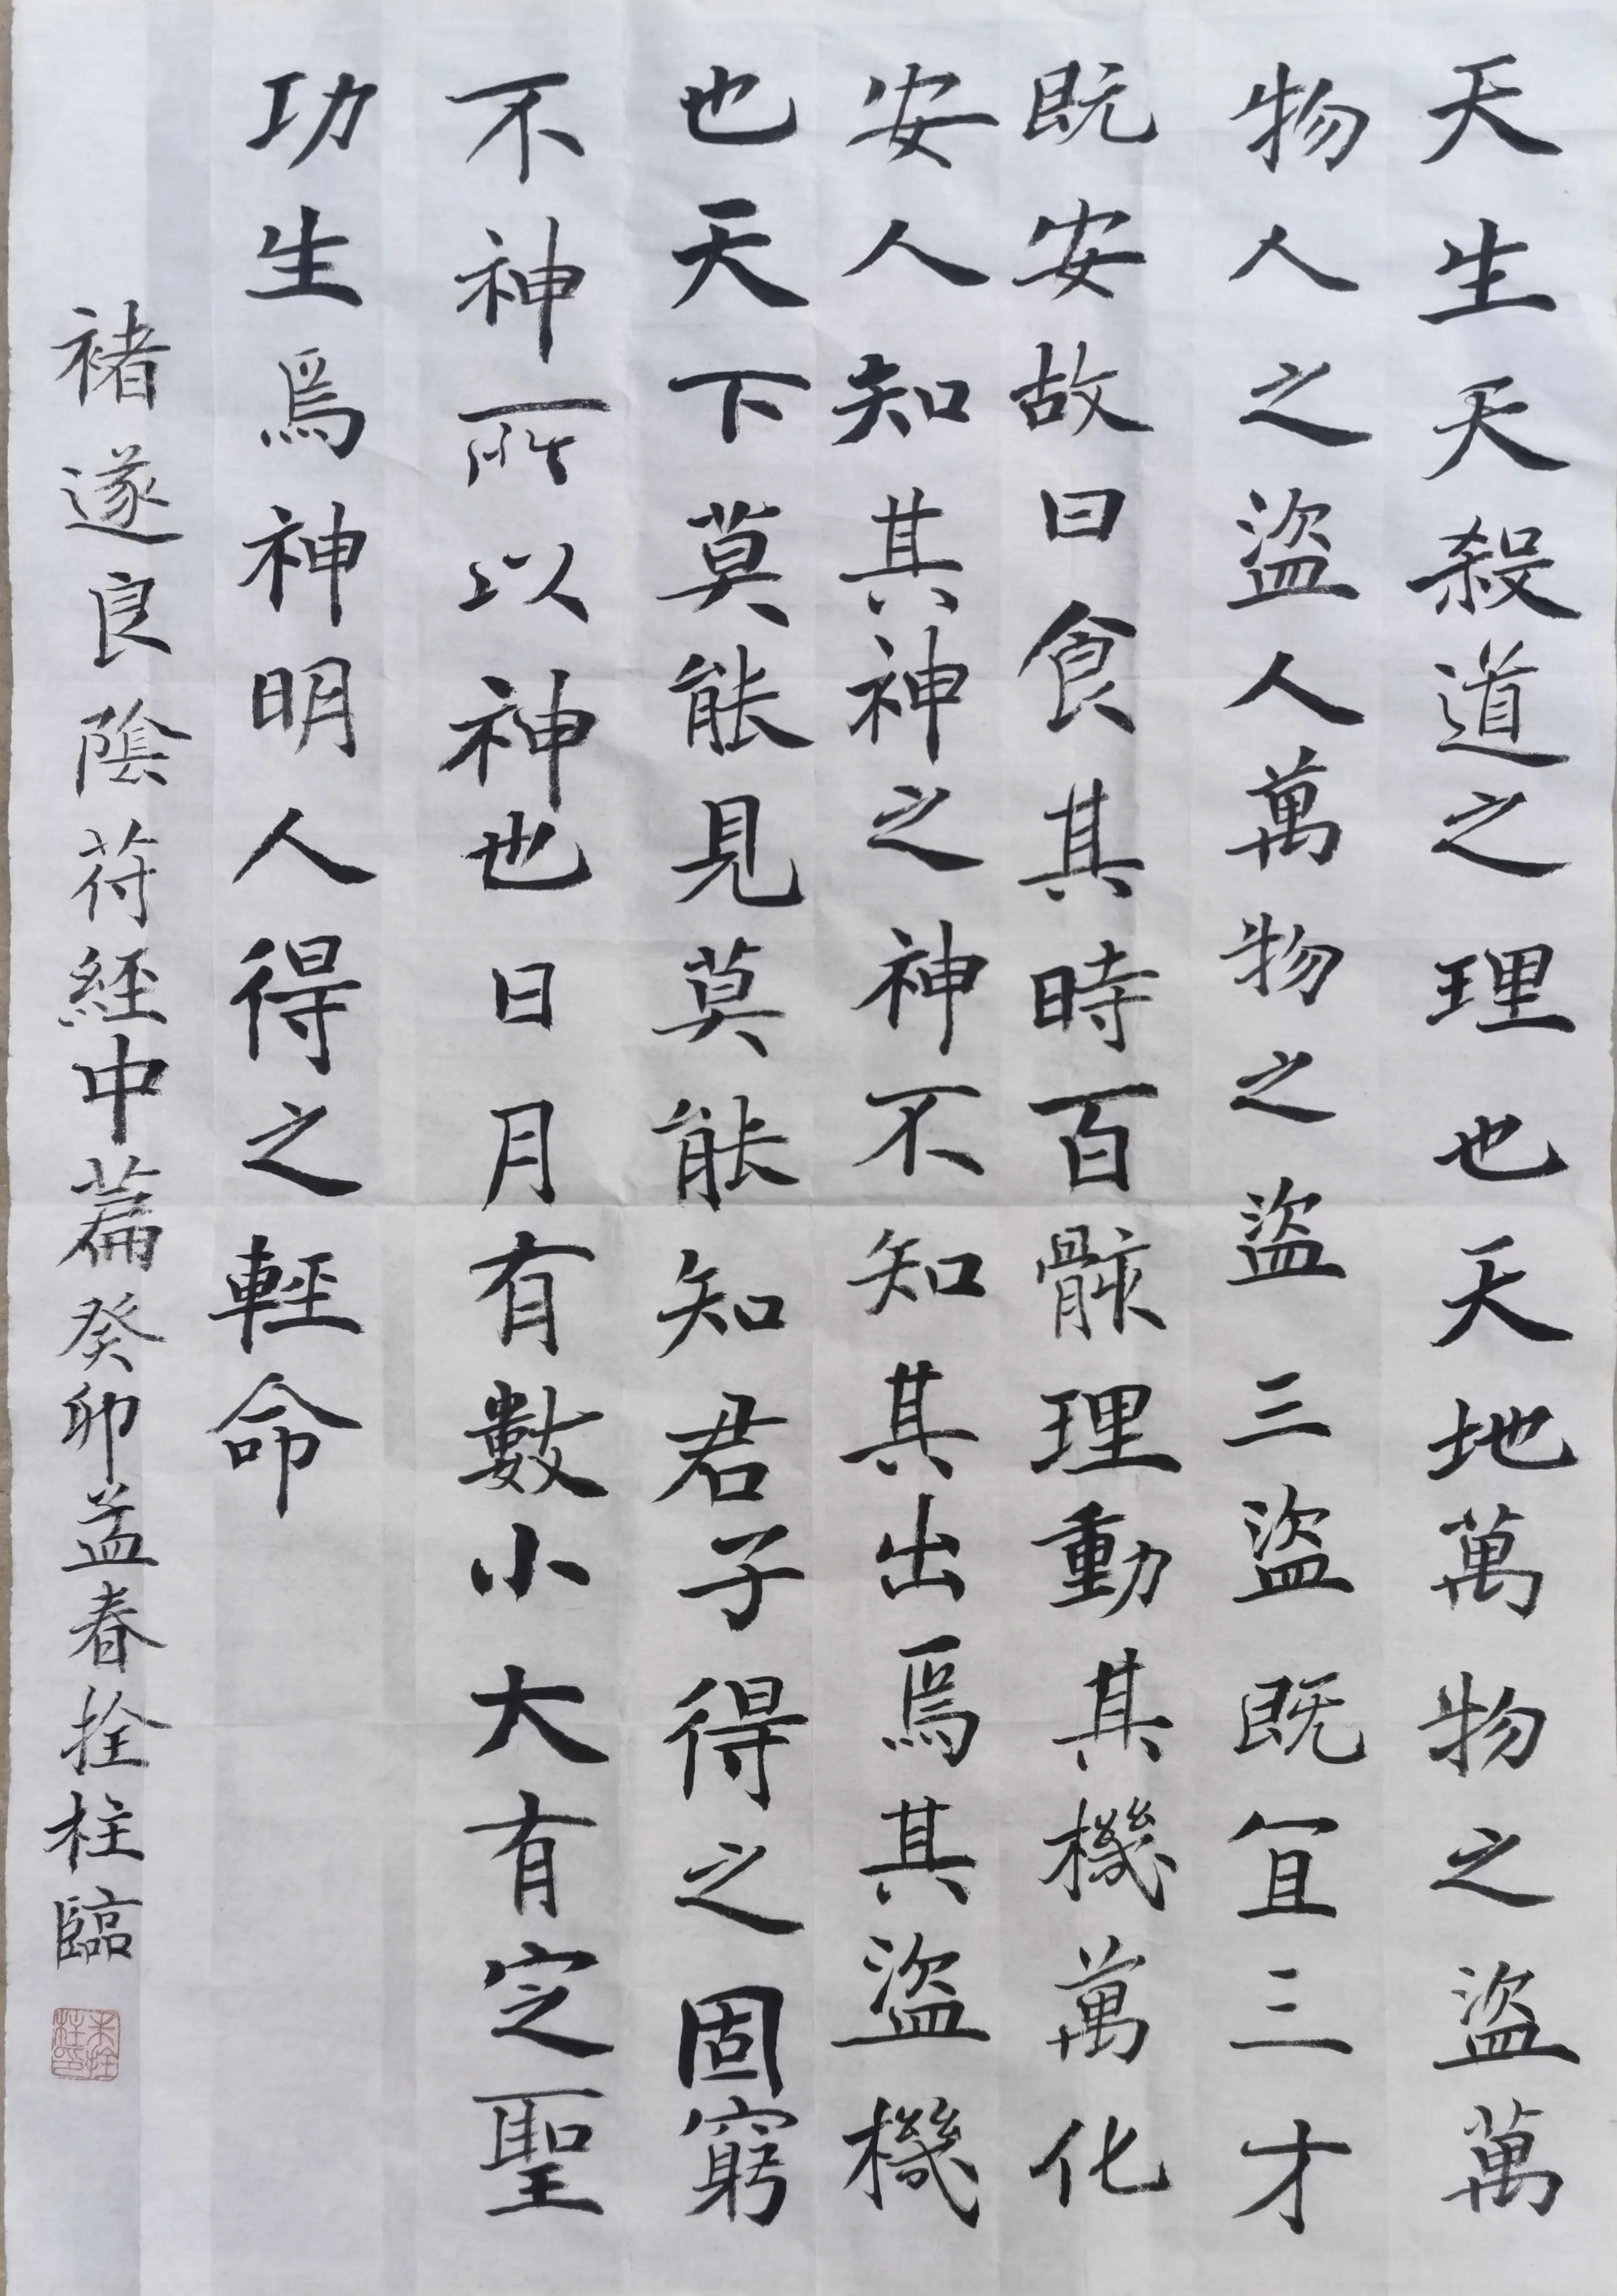 天生天殺道之理也天地萬物之盜萬
物人之盜人萬物之盜三盜既宜三才
既安故曰食其時百骸理動其機萬化
安人知其神之神不知其出焉其盜機
也天下莫能見莫能知君子得之固窮
不神所以神也日月有數小大有定聖
功生焉神明人得之輕命
褚遂良陰苻経中萹癸卯孟春拴柱臨